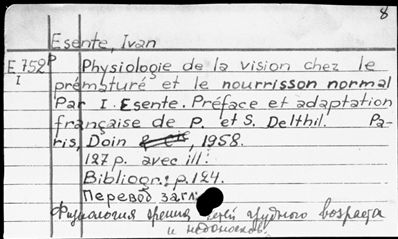 8
Esente, Ivan
E752p Physiologie de la vision chez le
I prématuré et le nourrisson normal
Par I. Esente. Préface et adaptation
française de P. et S. Delthil. Pa-
ris, Doin, 1958.
127 p. avec ill.
Bibliogr.: p. 124.
Перевод загл.:
Физиология зрения детей грудного возраста
и недоносков.